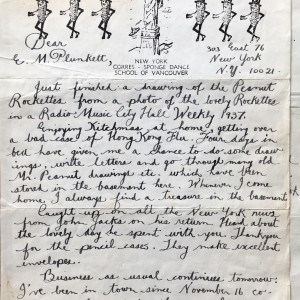 Dear
E. M. Plunkett,
NEW YORK
CORRES - SPONGE DANCE
SCHOOL OF VANCOUVER
303 East 76
New York
N.Y. 10021
Just finished a drawing of the Peanut
Rockettes from a photo of the lovely Rockettes
in a Radio Music City Hall Weekly 1937.
Enjoying Kitchmas at home, getting over
a bad case of Hong Kong Flu. Four days in
bed have given me a chance to do some draw-
ings, write letters and go through many old
Mr. Peanut drawings etc. which have been
stored in the basement here. Whenever I come
home I always find a treasure in the basement.
Caught up on all the New York news
from John Jacks on his return. Heard about
the lovely day he spent with you. Thankyou
for the pencil cases. They make excellent
envelopes.
Business as usual continues tomorrow.
I've been in town since November 16 co-